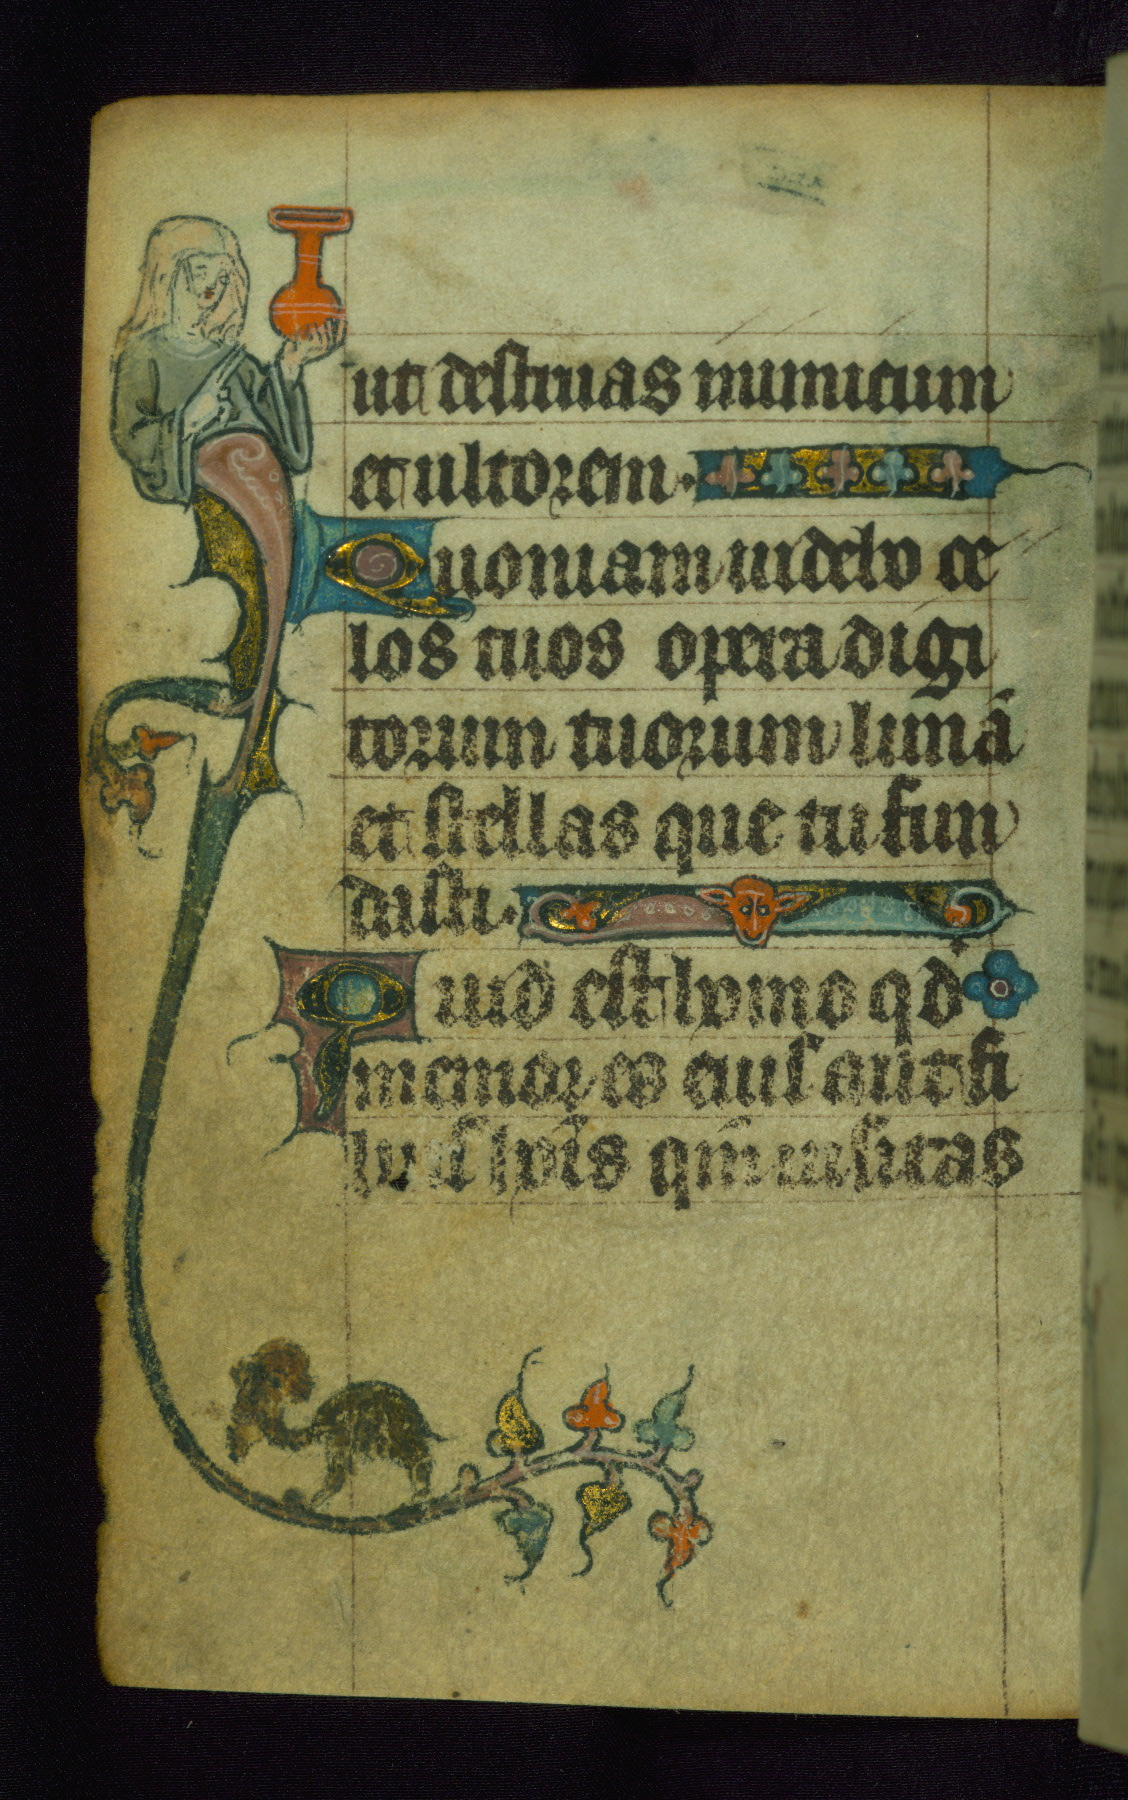 ut destruas inimicum
et ultorem
Quoniam uidebo ce
los tuos opera digi
torum tuorum lunā
et stellas que tu fun
dasti
Quid est homo qd
memor es eius aut fi
lius hoīs qm̄ uisitas